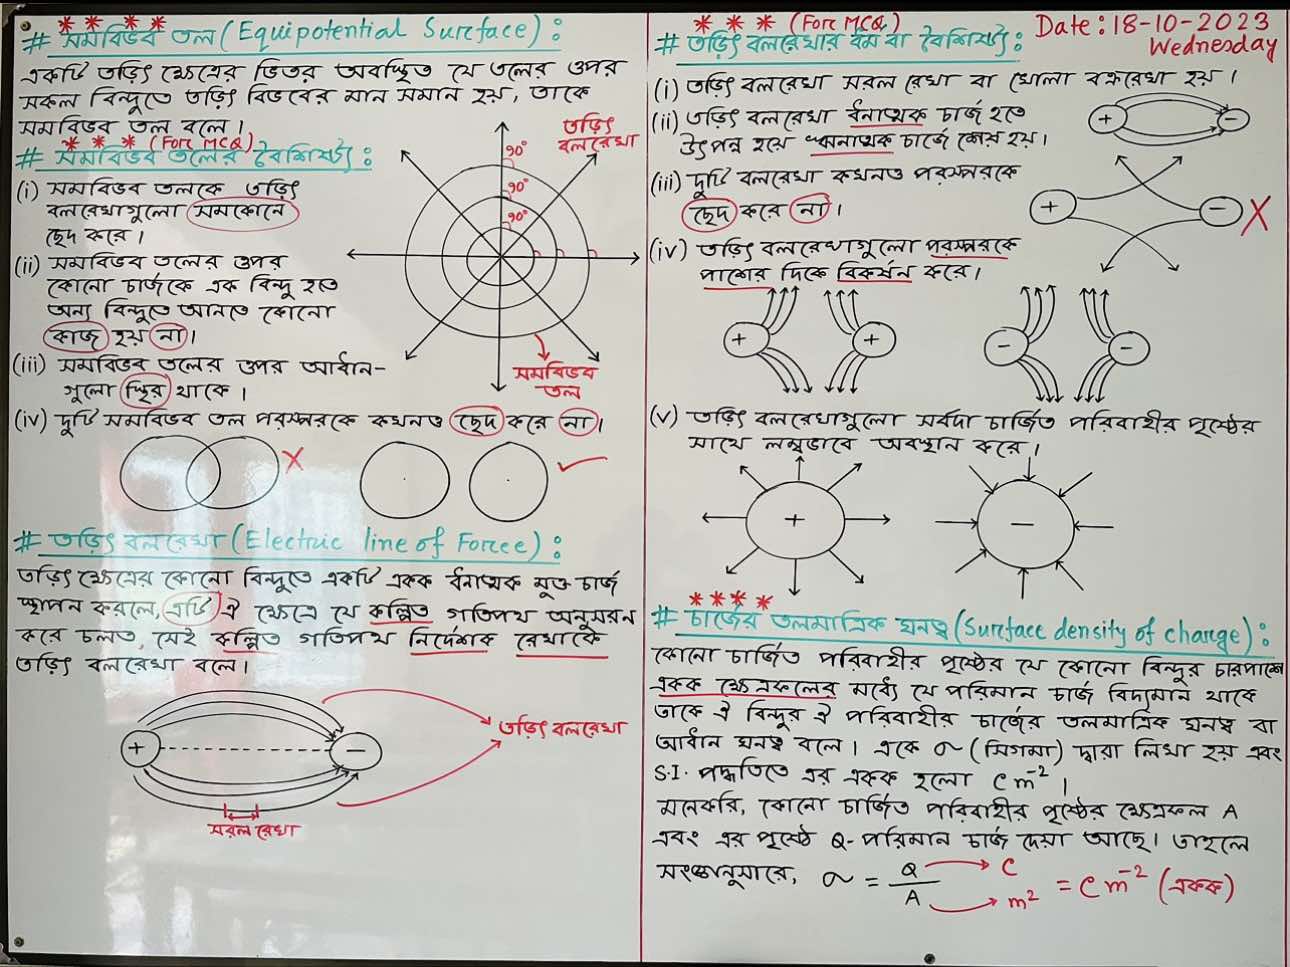 **** 
# সমবিভব তল (Equipotential Surface) :
একটি তড়িৎ ক্ষেত্রের ভিতর অবস্থিত যে তলের ওপর
সকল বিন্দুতে তড়িৎ বিভবের মান সমান হয়, তাকে
সমবিভব তল বলে।
*** (For MCQ)
# সমবিভব তলের বৈশিষ্ট্য :
(i) সমবিভব তলকে তড়িৎ
বলরেখাগুলো সমকোনে
ছেদ করে।
(ii) সমবিভব তলের ওপর
কোনো চার্জকে এক বিন্দু হতে
অন্য বিন্দুতে আনতে কোনো
কাজ হয় না।
(iii) সমবিভব তলের ওপর আধান-
গুলো স্থির থাকে।
তড়িৎ
বলরেখা
90°
90°
90°
সমবিভব
তল
(iv) দুটি সমবিভব তল পরস্পরকে কখনও ছেদ করে না।
# তড়িৎ বলরেখা (Electric line of Force) :
তড়িৎ ক্ষেত্রের কোনো বিন্দুতে একটি একক ধনাত্মক মুক্ত চার্জ
স্থাপন করলে, এটি ঐ ক্ষেত্রে যে কল্পিত গতিপথ অনুসরন
করে চলত, সেই কল্পিত গতিপথ নির্দেশক রেখাকে
তড়িৎ বলরেখা বলে।
+ −
তড়িৎ বলরেখা
সরল রেখা
Date: 18-10-2023
Wednesday
*** (For MCQ)
# তড়িৎ বলরেখার ধর্ম বা বৈশিষ্ট্য :
(i) তড়িৎ বলরেখা সরল রেখা বা খোলা বক্ররেখা হয়।
(ii) তড়িৎ বলরেখা ধনাত্মক চার্জ হতে
উৎপন্ন হয়ে ঋনাত্মক চার্জে শেষ হয়।
+ −
(iii) দুটি বলরেখা কখনও পরস্পরকে
ছেদ করে না।
+ −
(iv) তড়িৎ বলরেখাগুলো পরস্পরকে
পাশের দিকে বিকর্ষন করে।
+ + − −
(v) তড়িৎ বলরেখাগুলো সর্বদা চার্জিত পরিবাহীর পৃষ্ঠের
সাথে লম্বভাবে অবস্থান করে।
+ −
****
# চার্জের তলমাত্রিক ঘনত্ব (Surface density of charge) :
কোনো চার্জিত পরিবাহীর পৃষ্ঠের যে কোনো বিন্দুর চারপাশে
একক ক্ষেত্রফলের মধ্যে যে পরিমান চার্জ বিদ্যমান থাকে
তাকে ঐ বিন্দুর ঐ পরিবাহীর চার্জের তলমাত্রিক ঘনত্ব বা
আধান ঘনত্ব বলে। একে σ (সিগমা) দ্বারা লিখা হয় এবং
S.I. পদ্ধতিতে এর একক হলো C m⁻²।
মনেকরি, কোনো চার্জিত পরিবাহীর পৃষ্ঠের ক্ষেত্রফল A
এবং এর পৃষ্ঠে Q-পরিমান চার্জ দেয়া আছে। তাহলে
সংজ্ঞানুসারে, σ = Q/A → C / → m² = C m⁻² (একক)